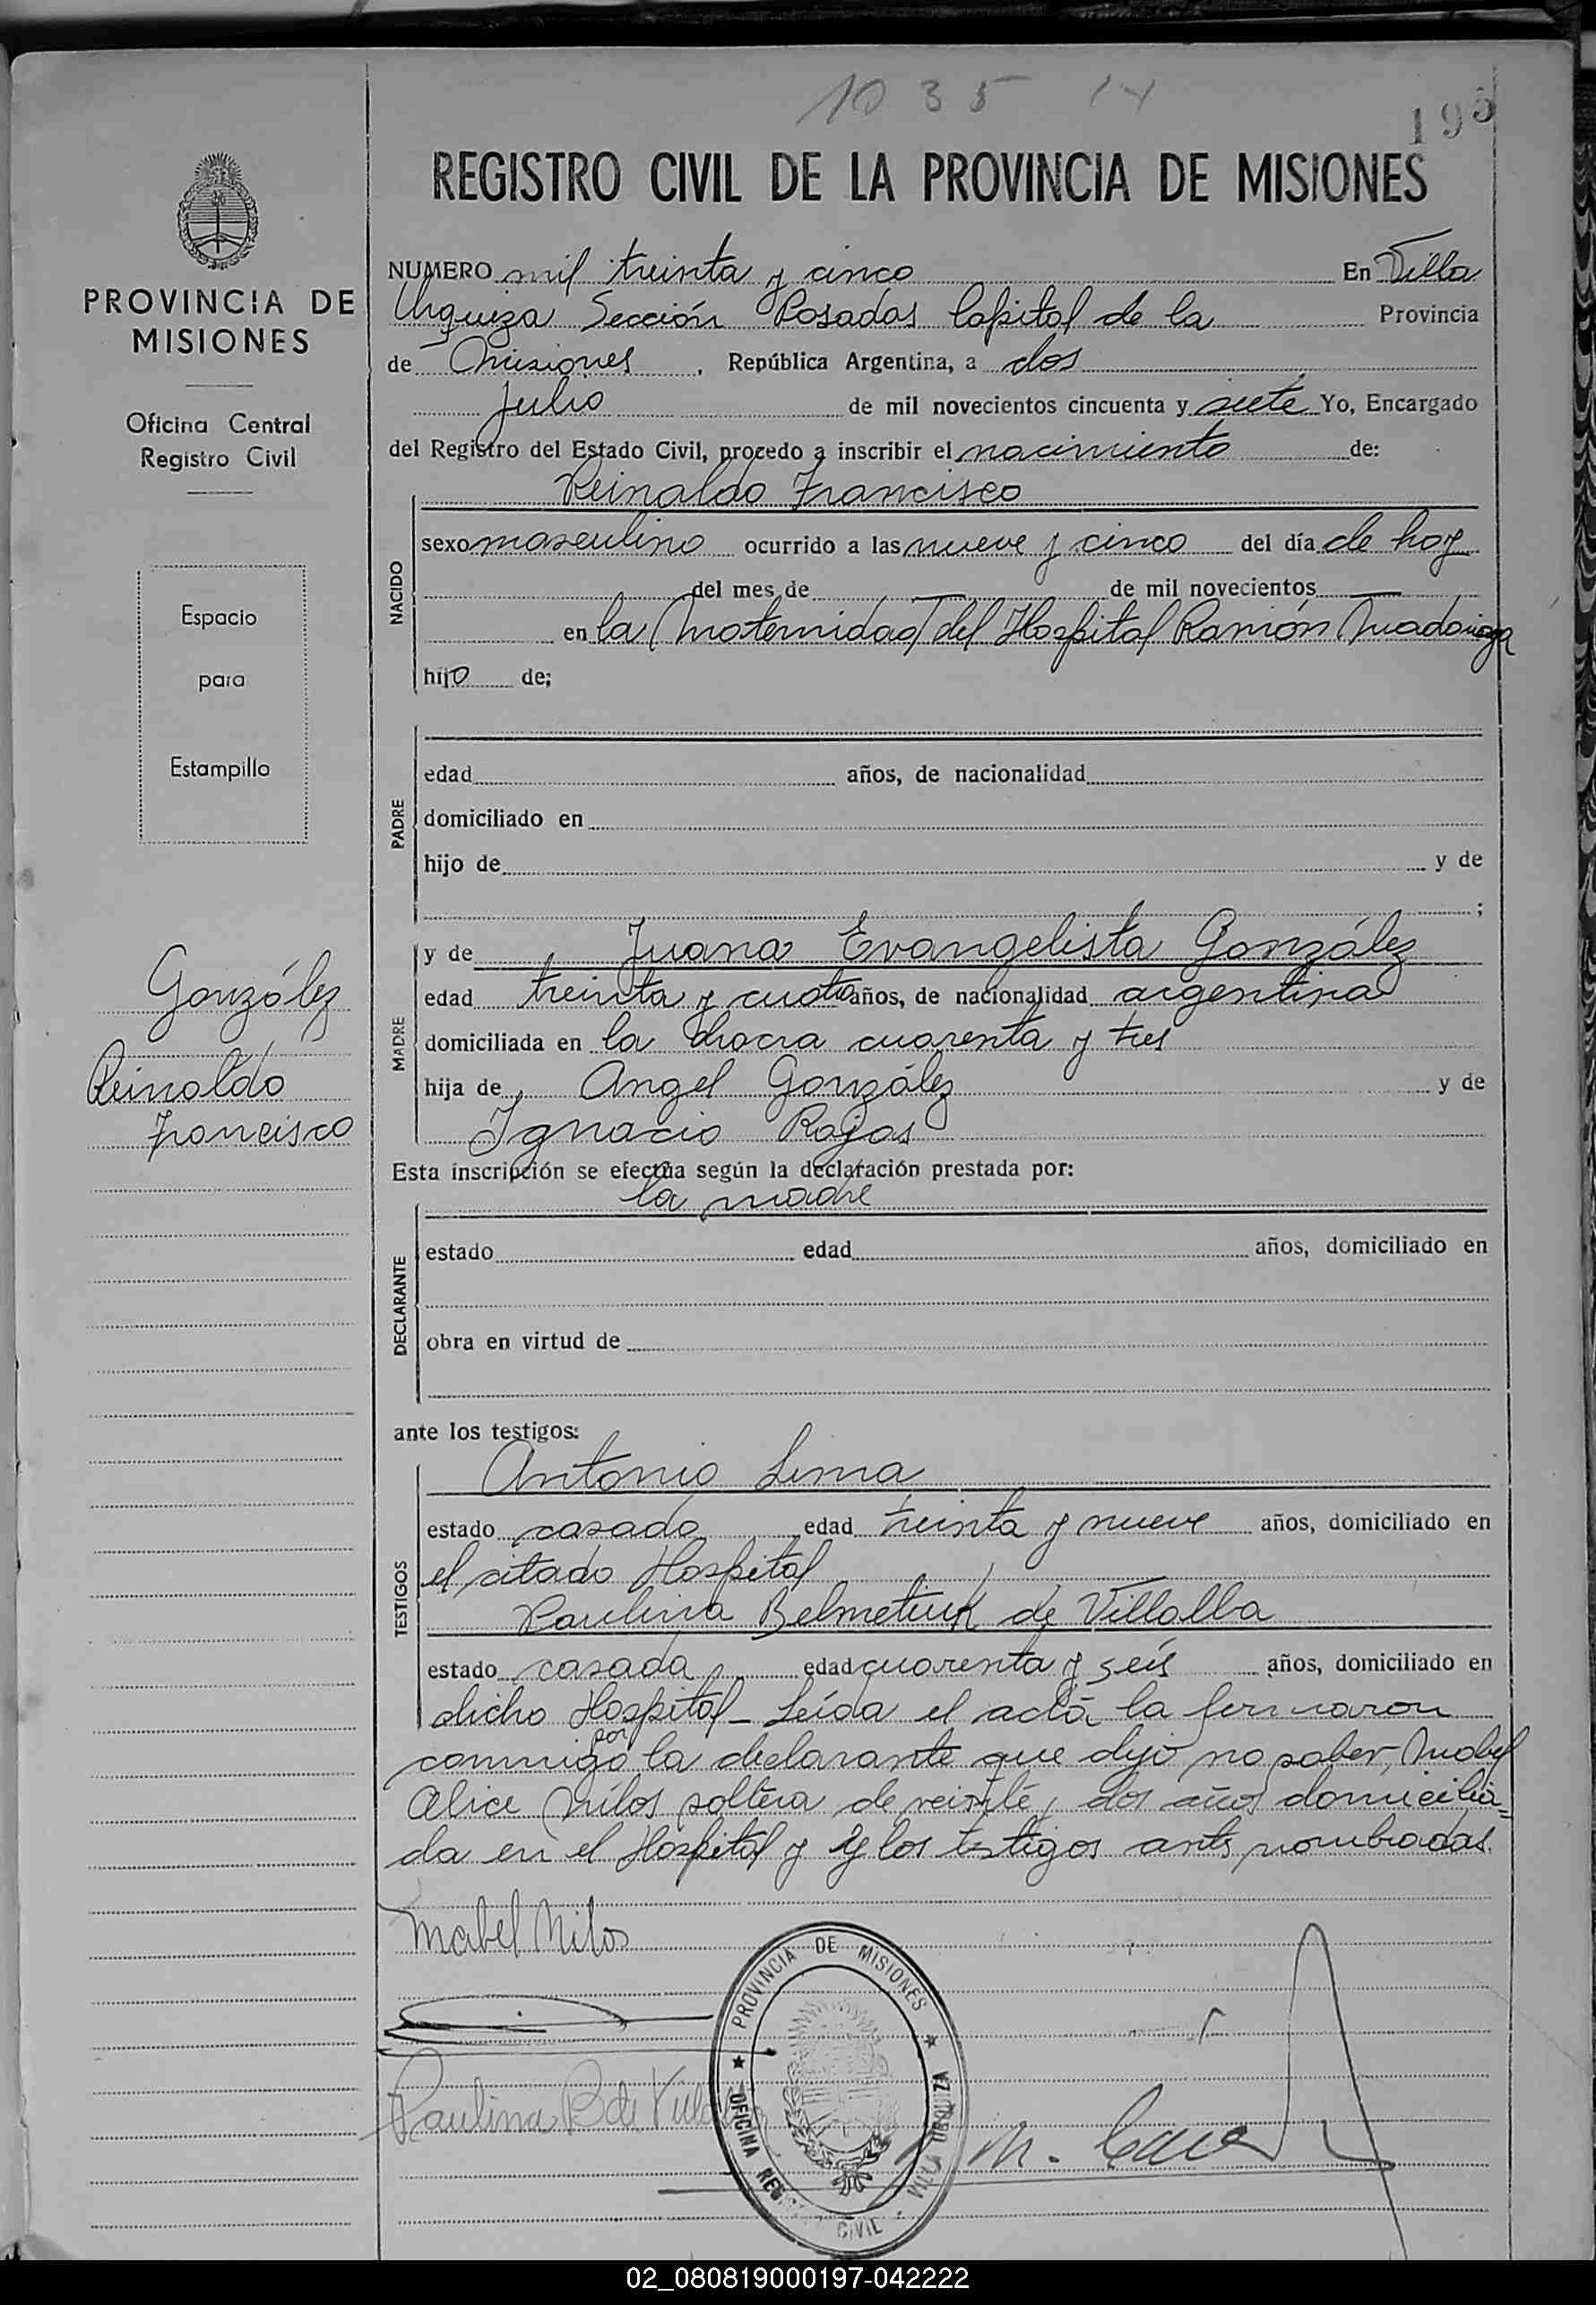 1035
195
REGISTRO CIVIL DE LA PROVINCIA DE MISIONES
PROVINCIA DE
MISIONES
Oficina Central
Registro Civil
Espacio
para
Estampilla
González
Reinaldo
Francisco
NUMERO mil treinta y cinco En Villa
Urquiza Sección Posadas Capital de la Provincia
de Misiones, República Argentina, a dos
Julio de mil novecientos cincuenta y siete Yo, Encargado
del Registro del Estado Civil, procedo a inscribir el nacimiento de:
Reinaldo Francisco
NACIDO
sexo masculino ocurrido a las nueve y cinco del día de hoy
del mes de de mil novecientos
en la Maternidad del Hospital Ramón Madariaga
hijo de;
PADRE
edad años, de nacionalidad
domiciliado en
hijo de y de
;
MADRE
y de Juana Evangelista González
edad treinta y cuatro años, de nacionalidad argentina
domiciliada en la chacra cuarenta y tres
hija de Angel González y de
Ignacio Rojas
Esta inscripción se efectúa según la declaración prestada por:
la madre
DECLARANTE
estado edad años, domiciliado en
obra en virtud de
ante los testigos:
Antonio Lima
TESTIGOS
estado casado edad treinta y nueve años, domiciliado en
el citado Hospital
Paulina Belmetiuk de Villalba
estado casada edad cuarenta y seis años, domiciliado en
dicho Hospital - Leída el acta la firmaron
conmigo por la declarante que dijo no saber, Mabel
Alice Milos soltera de veinte y dos años domicilia=
da en el Hospital y y los testigos antes nombradas.
Mabel Milos
Paulina B de
M.
PROVINCIA DE MISIONES ★ VILLA URQUIZA - OFICINA REGISTRO CIVIL ★
02_080819000197-042222